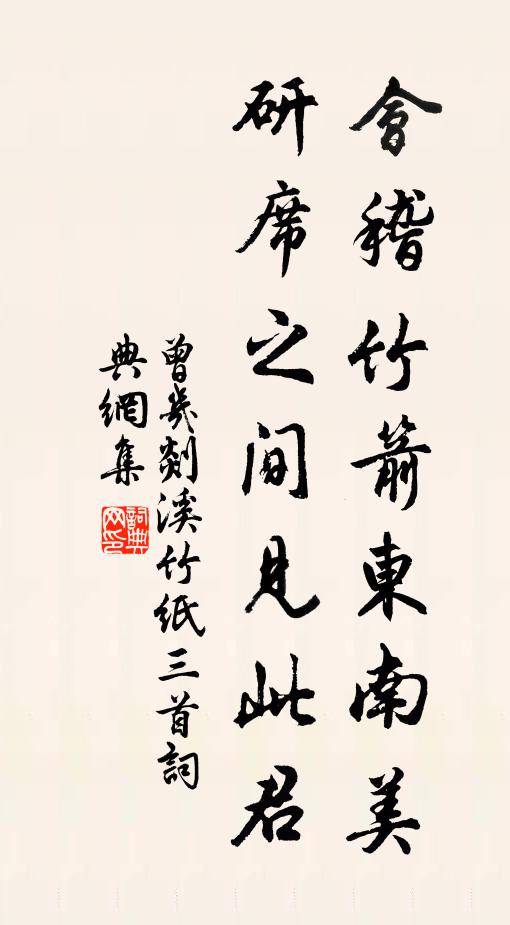 會稽竹箭東南美
研席之间見此君
曾幾剡溪竹紙三首詞
典網集
詞典網印